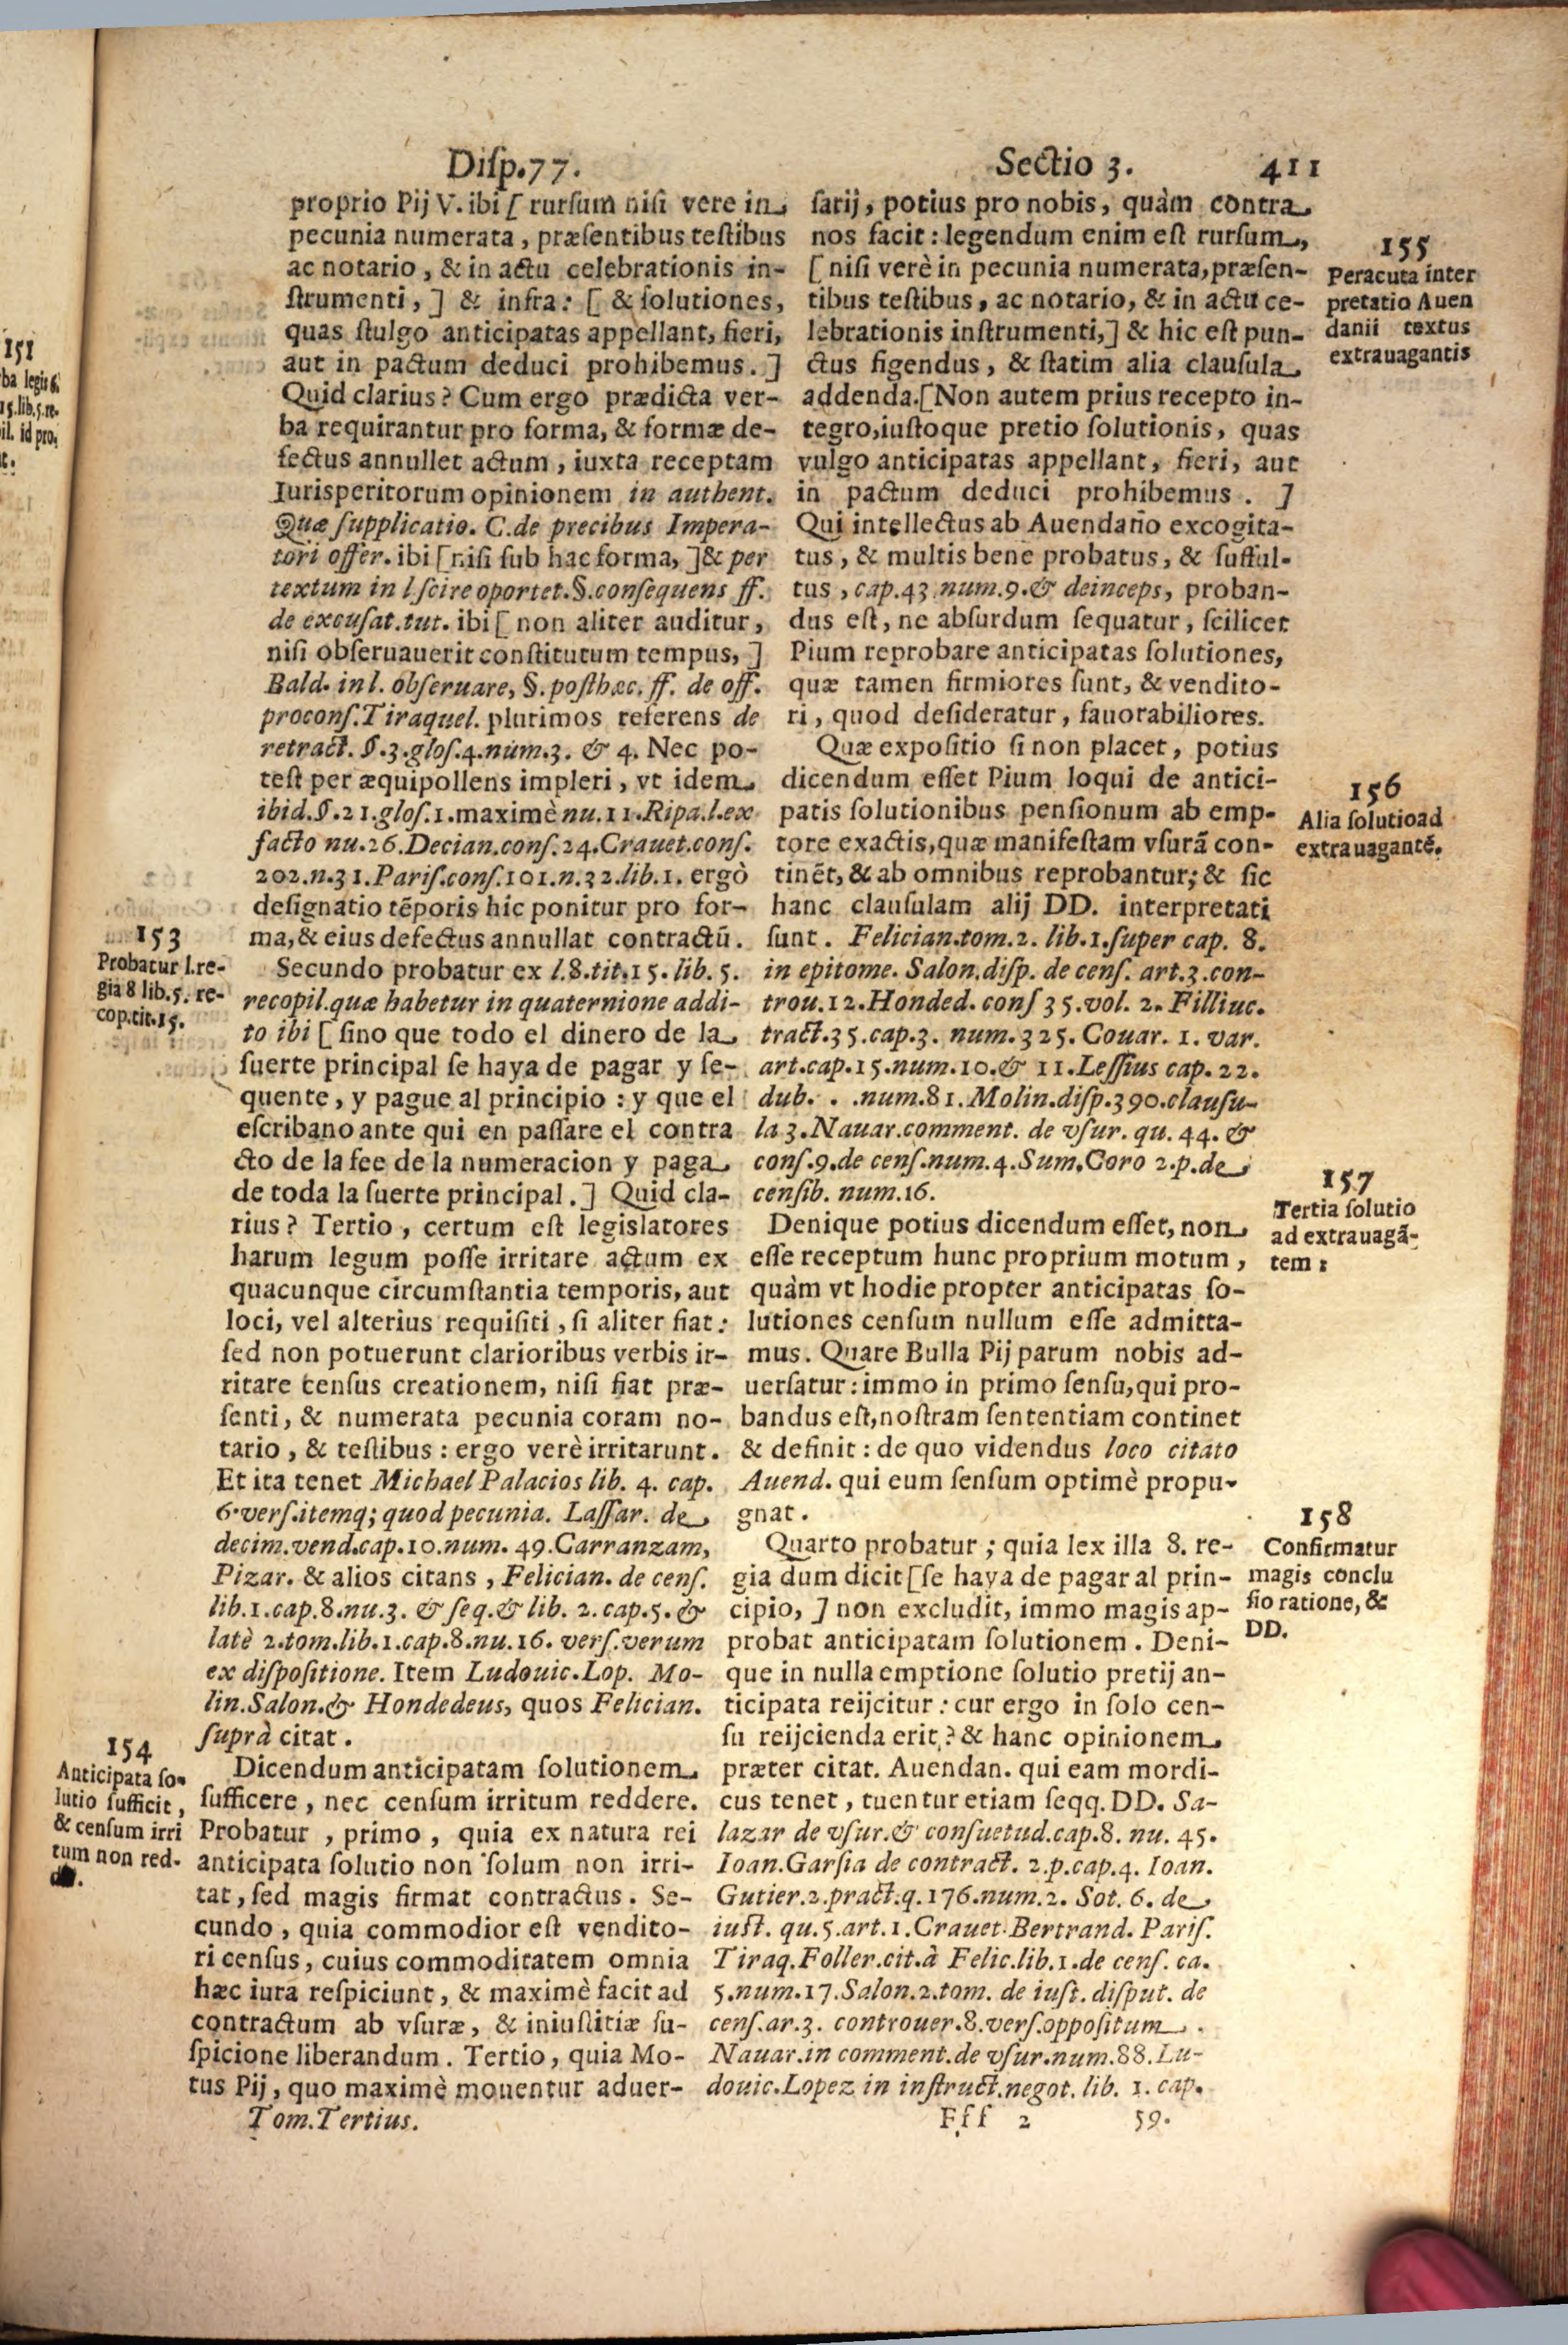 Disp.77.
Sectio 3.
411
proprio Pij V. ibi [ rursum nisi vere in
pecunia numerata, præsentibus testibus
ac notario, & in actu celebrationis in-
strumenti, ] & infra: [ & solutiones,
quas stulgo anticipatas appellant, fieri,
aut in pactum deduci prohibemus. ]
Quid clarius? Cum ergo prædicta ver-
ba requirantur pro forma, & formæ de-
fectus annullet actum, iuxta receptam
Iurisperitorum opinionem in authent.
Quæ supplicatio. C. de precibus Impera-
tori offer. ibi [ nisi sub hac forma, ] & per
textum in l scire oportet. §. consequens ff.
de excusat. tut. ibi [ non aliter auditur,
nisi obseruauerit constitutum tempus, ]
Bald. in l. obseruare, §. posthæc. ff. de off.
procons. Tiraquel. plurimos referens de
retract. §. 3. glos. 4. num. 3. & 4. Nec po-
test per æquipollens impleri, vt idem
ibid. §. 21. glos. 1. maximè nu. 11. Ripa. l. ex
facto nu. 26. Decian. cons. 24. Crauet. cons.
202. n. 31. Paris. cons. 101. n. 32. lib. 1. ergò
designatio tēporis hic ponitur pro for-
ma, & eius defectus annullat contractū.
153
Probatur l. re-
gia 8 lib. 5. re-
cop. tit. 15.
Secundo probatur ex l. 8. tit. 15. lib. 5.
recopil. quæ habetur in quaternione addi-
to ibi [ sino que todo el dinero de la
suerte principal se haya de pagar y se-
quente, y pague al principio : y que el
escribano ante qui en passare el contra
cto de la fee de la numeracion y paga
de toda la suerte principal. ] Quid cla-
rius? Tertio, certum est legislatores
harum legum posse irritare actum ex
quacunque circumstantia temporis, aut
loci, vel alterius requisiti, si aliter fiat:
sed non potuerunt clarioribus verbis ir-
ritare census creationem, nisi fiat præ-
senti, & numerata pecunia coram no-
tario, & testibus : ergo verè irritarunt.
Et ita tenet Michael Palacios lib. 4. cap.
6. vers. itemq; quod pecunia. Lassar. de
decim. vend. cap. 10. num. 49. Carranzam,
Pizar. & alios citans, Felician. de cens.
lib. 1. cap. 8. nu. 3. & seq. & lib. 2. cap. 5. &
latè 2. tom. lib. 1. cap. 8. nu. 16. vers. verum
ex dispositione. Item Ludouic. Lop. Mo-
lin. Salon. & Hondedeus, quos Felician.
suprà citat.
154
Anticipata so-
lutio sufficit,
& censum irri
tum non red-
Dicendum anticipatam solutionem
sufficere, nec censum irritum reddere.
Probatur, primo, quia ex natura rei
anticipata solutio non solum non irri-
tat, sed magis firmat contractus. Se-
cundo, quia commodior est vendito-
ri census, cuius commoditatem omnia
hæc iura respiciunt, & maximè facit ad
contractum ab vsuræ, & iniustitiæ su-
spicione liberandum. Tertio, quia Mo-
tus Pij, quo maximè mouentur aduer-
Tom. Tertius.
sarij, potius pro nobis, quàm contra
nos facit : legendum enim est rursum,
[ nisi verè in pecunia numerata, præsen-
tibus testibus, ac notario, & in actu ce-
lebrationis instrumenti, ] & hic est pun-
ctus figendus, & statim alia clausula
addenda. [ Non autem prius recepto in-
tegro, iustoque pretio solutionis, quas
vulgo anticipatas appellant, fieri, aut
in pactum deduci prohibemus. ]
Qui intellectus ab Auendaño excogita-
tus, & multis bene probatus, & sufful-
tus, cap. 43 num. 9. & deinceps, proban-
dus est, ne absurdum sequatur, scilicet
Pium reprobare anticipatas solutiones,
quæ tamen firmiores sunt, & vendito-
ri, quod desideratur, fauorabiliores.
155
Peracuta inter
pretatio Auen
danii textus
extrauagantis
Quæ expositio si non placet, potius
dicendum esset Pium loqui de antici-
patis solutionibus pensionum ab emp-
tore exactis, quæ manifestam vsurã con-
tinēt, & ab omnibus reprobantur; & sic
hanc clausulam alij DD. interpretati
sunt. Felician. tom. 2. lib. 1. super cap. 8.
in epitome. Salon. disp. de cens. art. 3. con-
trou. 12. Honded. cons 35. vol. 2. Filliuc.
tract. 35. cap. 3. num. 325. Couar. 1. var.
art. cap. 15. num. 10. & 11. Lessius cap. 22.
dub. . . num. 81. Molin. disp. 390. clausu-
la 3. Nauar. comment. de vsur. qu. 44. &
cons. 9. de cens. num. 4. Sum. Coro 2. p. de
censib. num. 16.
156
Alia solutio ad
extrauagantē.
Denique potius dicendum esset, non
esse receptum hunc proprium motum,
quàm vt hodie propter anticipatas so-
lutiones censum nullum esse admitta-
mus. Quare Bulla Pij parum nobis ad-
uersatur : immo in primo sensu, qui pro-
bandus est, nostram sententiam continet
& definit : de quo videndus loco citato
Auend. qui eum sensum optimè propu-
gnat.
157
Tertia solutio
ad extrauagã-
tem :
Quarto probatur ; quia lex illa 8. re-
gia dum dicit [ se haya de pagar al prin-
cipio, ] non excludit, immo magis ap-
probat anticipatam solutionem. Deni-
que in nulla emptione solutio pretij an-
ticipata reijcitur : cur ergo in solo cen-
su reijcienda erit ? & hanc opinionem
præter citat. Auendan. qui eam mordi-
cus tenet, tuentur etiam seqq. DD. Sa-
lazar de vsur. & consuetud. cap. 8. nu. 45.
Ioan. Garsia de contract. 2. p. cap. 4. Ioan.
Gutier. 2. pract. q. 176. num. 2. Sot. 6. de
iust. qu. 5. art. 1. Crauet. Bertrand. Paris.
Tiraq. Foller. cit. à Felic. lib. 1. de cens. ca.
5. num. 17. Salon. 2. tom. de iust. disput. de
cens. ar. 3. controuer. 8. vers. oppositum .
Nauar. in comment. de vsur. num. 88. Lu-
douic. Lopez in instruct. negot. lib. 1. cap.
158
Confirmatur
magis conclu
sio ratione, &
DD.
Fff 2
59.
151